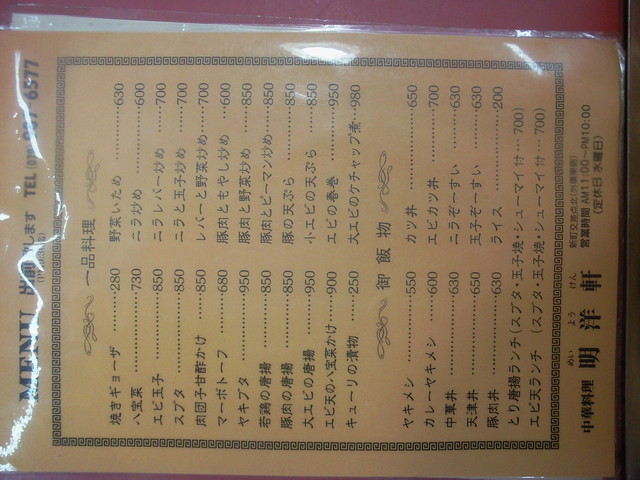 MENU します TEL
一品料理
焼きギョーザ………280 野菜いため…………630
八宝菜………………730 ニラ炒め……………600
エビ玉子……………850 ニラレバー炒め……700
スブタ………………850 ニラと玉子炒め……700
肉団子甘酢かけ……850 レバーと野菜炒め…700
マーボトーフ………680 豚肉ともやし炒め…600
ヤキブタ……………950 豚肉と野菜炒め……850
若鶏の唐揚…………850 豚肉とピーマン炒め…850
豚肉の唐揚…………850 豚の天ぷら…………850
大エビの唐揚………950 小エビの天ぷら……850
エビ天の八宝菜かけ…900 エビの春巻…………950
キューリの漬物……250 大エビのケチャップ煮…980
御飯物
ヤキメシ……………550 カツ丼………………650
カレーヤキメシ……600 エビカツ丼…………700
中華丼………………630 ニラぞーすい………630
天津丼………………650 玉子ぞーすい………630
豚肉丼………………630 ライス………………200
とり唐揚ランチ(スブタ・玉子焼・シューマイ付…700)
エビ天ランチ(スブタ・玉子焼・シューマイ付…700)
中華料理 明洋軒
めい よう けん
営業時間 AM11:00〜PM10:00
(定休日 水曜日)